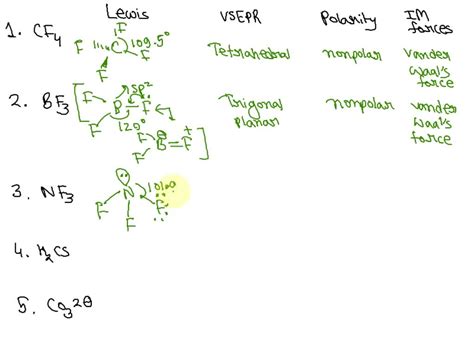 Lewis VSEPR Polarity IM forces
1. CF4 F F F F C 109.5° Tetrahedral nonpolar vander waal's force
2. BF3 [F B F F sp² 120° F F B=F ⊖ +] Trigonal planar nonpolar vander waal's force
3. NF3 N F F F
4. H2CS
5. CO3 2⊖